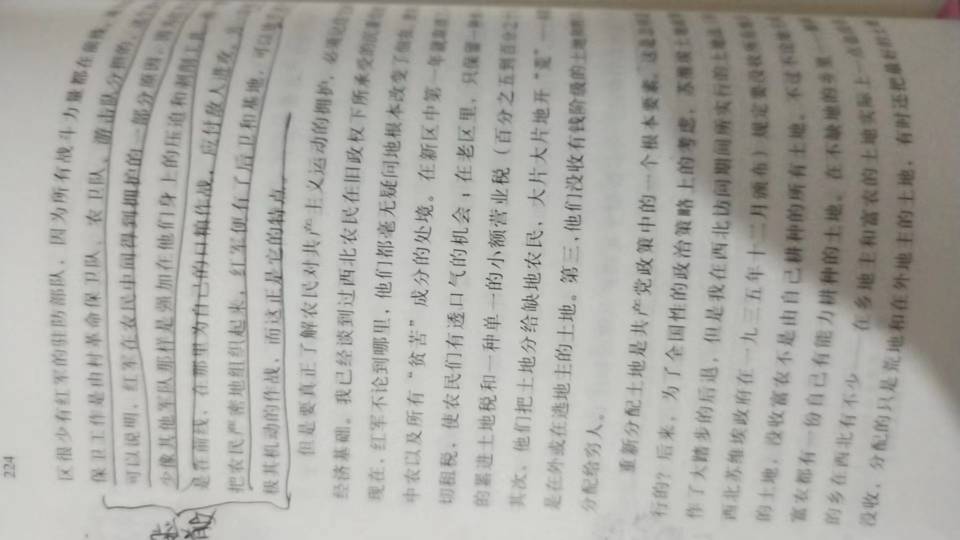 224
区很少有红军的驻防部队，因为所有战斗力量都在前线
保卫工作是由村革命保卫队、农卫队、游击队分担的。
可以说明，红军在农民中间得到拥护的一部分原因，
少像其他军队那样是强加在他们身上的压迫和剥削工具，
是在前线，在那里为自己的口粮作战，应付敌人进攻。
把农民严密地组织起来，红军便有了后卫和基地，可以
极其机动的作战，而这正是它的特点。
但是要真正了解农民对共产主义运动的拥护，必须记住
经济基础。我已经谈到过西北农民在旧政权下所承受的
现在，红军不论到哪里，他们都毫无疑问地根本改变了佃农、
中农以及所有“贫苦”成分的处境。在新区中第一年就
切租税，使农民们有透口气的机会；在老区里，只保留一种
的累进土地税和一种单一的小额营业税（百分之五到百分之
其次，他们把土地分给缺地农民，大片大片地开“荒”——
是在外或在逃地主的土地。第三，他们没收有钱阶级的土地
分配给穷人。
重新分配土地是共产党政策中的一个根本要素。这是
行的？后来，为了全国性的政治策略上的考虑，苏维埃土地
作了大踏步的后退，但是我在西北访问期间所实行的土地
西北苏维埃政府在一九三五年十二月颁布）规定要没收
的土地，没收富农不是由自己耕种的所有土地。不过不论
富农都有一份自己有能力耕种的土地。在不缺地的乡里——
的乡在西北有不少——在乡地主和富农的土地实际上一点
没收，分配的只是荒地和在外地主的土地，有时还把最好的